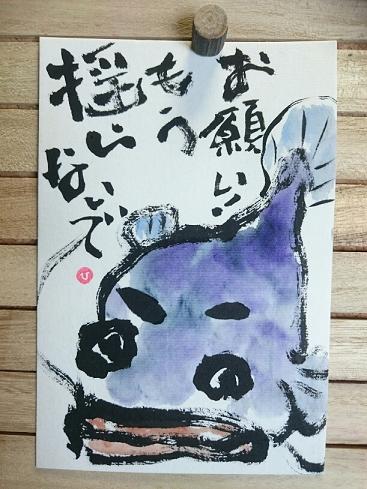 お願い!
もう
揺れないで
ひ